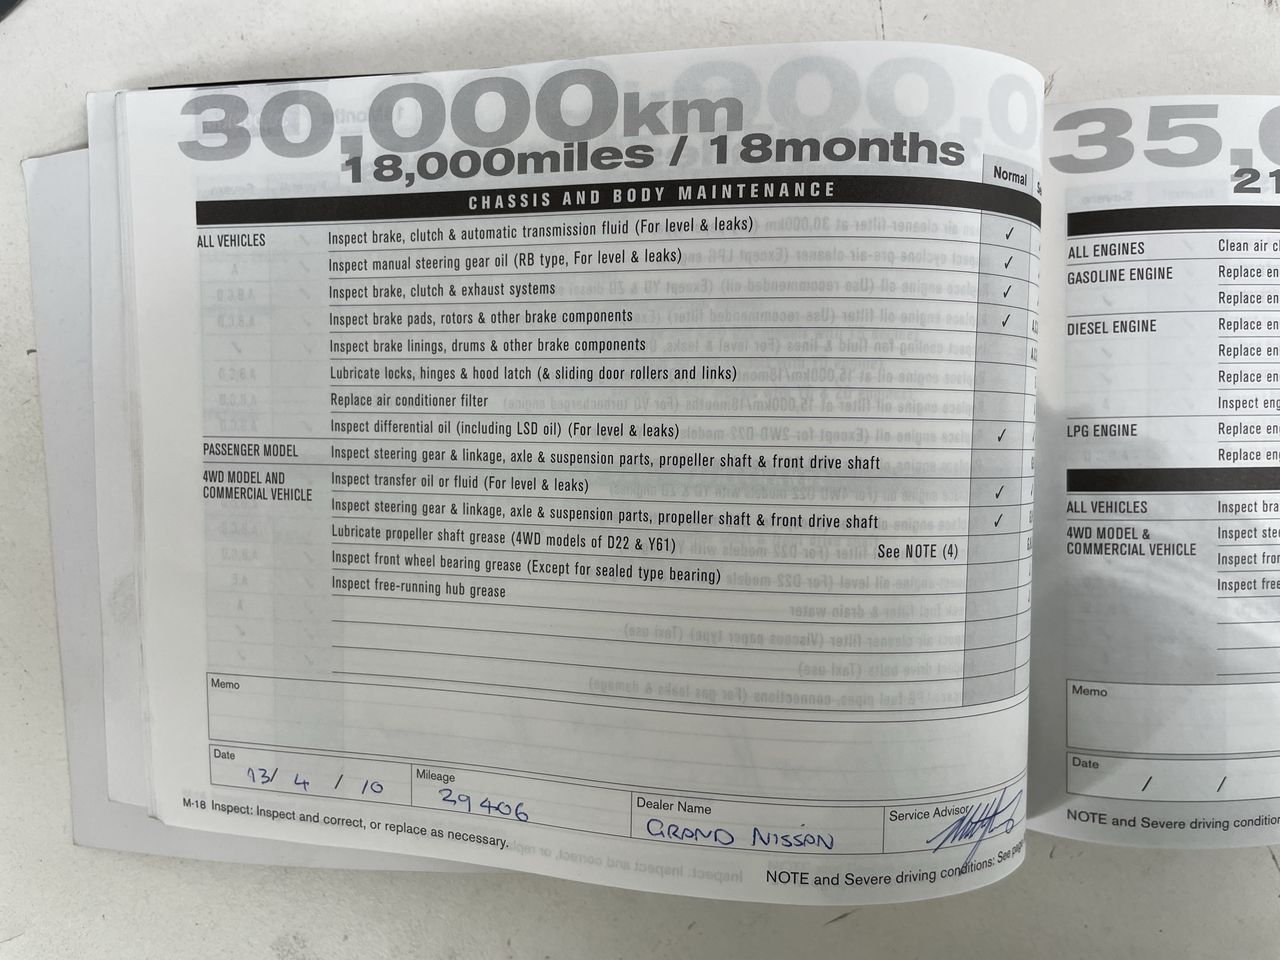 30,000km
18,000miles / 18months
Normal
CHASSIS AND BODY MAINTENANCE
ALL VEHICLES Inspect brake, clutch & automatic transmission fluid (For level & leaks) ✓
Inspect manual steering gear oil (RB type, For level & leaks) ✓
Inspect brake, clutch & exhaust systems ✓
Inspect brake pads, rotors & other brake components ✓
Inspect brake linings, drums & other brake components
Lubricate locks, hinges & hood latch (& sliding door rollers and links)
Replace air conditioner filter
Inspect differential oil (including LSD oil) (For level & leaks) ✓
PASSENGER MODEL Inspect steering gear & linkage, axle & suspension parts, propeller shaft & front drive shaft
4WD MODEL AND
COMMERCIAL VEHICLE
Inspect transfer oil or fluid (For level & leaks) ✓
Inspect steering gear & linkage, axle & suspension parts, propeller shaft & front drive shaft ✓
Lubricate propeller shaft grease (4WD models of D22 & Y61) See NOTE (4)
Inspect front wheel bearing grease (Except for sealed type bearing)
Inspect free-running hub grease
Memo
Date 13/ 4 / 10
Mileage 29406
Dealer Name GRAND NISSAN
Service Advisor
M-18 Inspect: Inspect and correct, or replace as necessary.
NOTE and Severe driving conditions: See
35,0
21
ALL ENGINES Clean air cl
GASOLINE ENGINE Replace en
Replace en
DIESEL ENGINE Replace en
Replace en
Replace en
Inspect eng
LPG ENGINE Replace en
Replace en
ALL VEHICLES Inspect bra
4WD MODEL &
COMMERCIAL VEHICLE
Inspect stee
Inspect fron
Inspect free
Memo
Date / /
NOTE and Severe driving condition